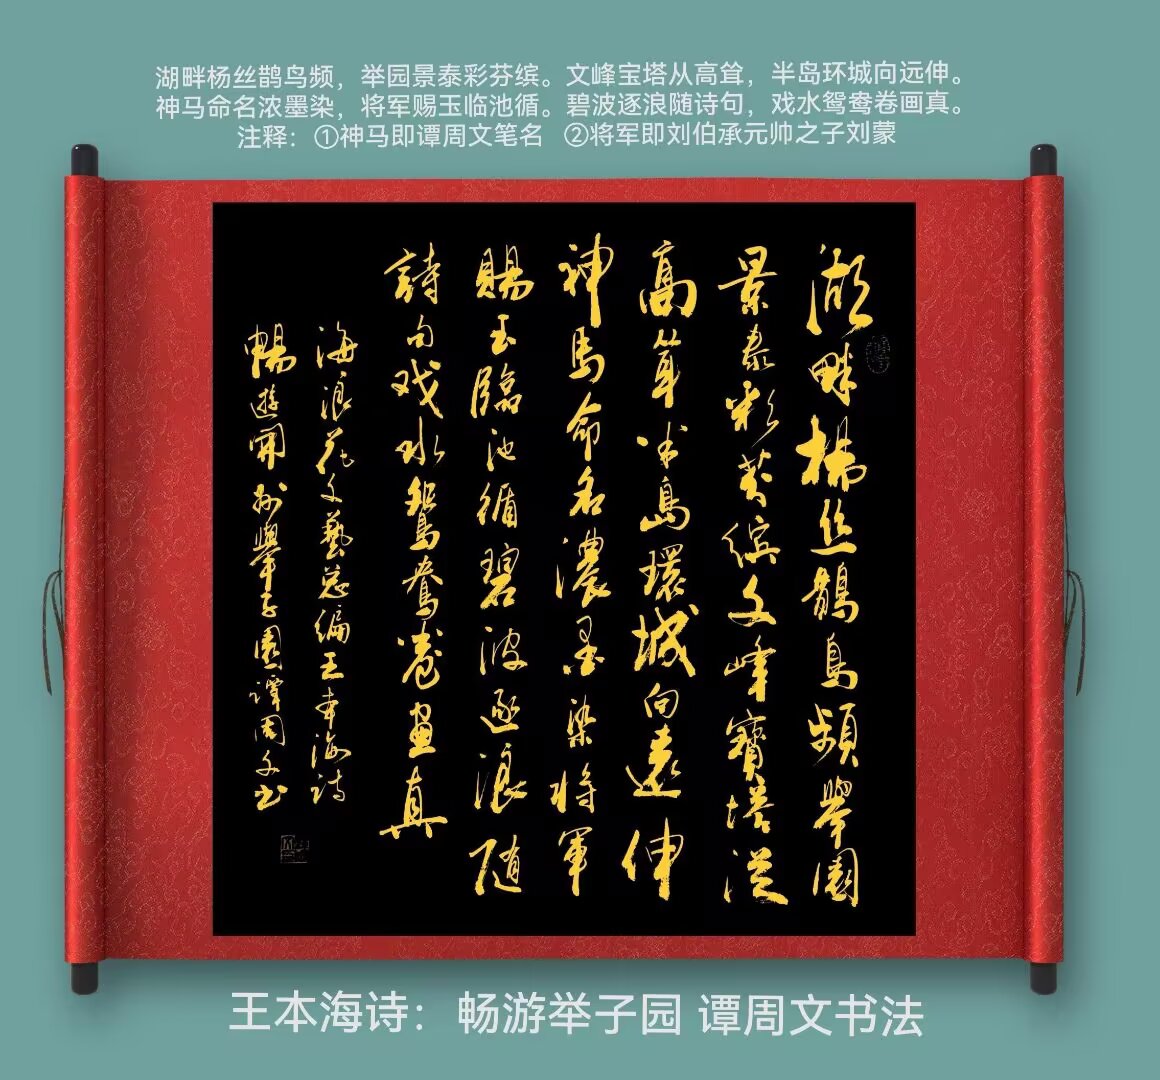 湖畔杨丝鹊鸟频，举园景泰彩芬缤。文峰宝塔从高耸，半岛环城向远伸。
神马命名浓墨染，将军赐玉临池循。碧波逐浪随诗句，戏水鸳鸯卷画真。
注释：①神马即谭周文笔名 ②将军即刘伯承元帅之子刘蒙
湖畔楊丝鵲鳥頻舉園
景泰彩芬缤文峰寶塔從
高耸半島環城向遠伸
神馬命名濃墨染将軍
賜玉臨池循碧波逐浪随
詩句戏水鴛鴦卷画真
海浪花文藝总编王本海诗
暢遊開州舉子園谭周文书
王本海诗：畅游举子园 谭周文书法